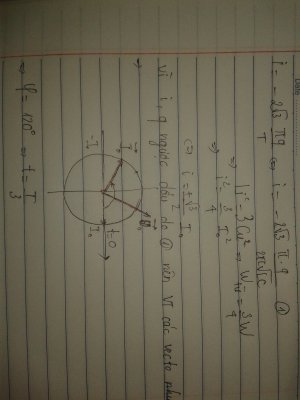 i = - 2√3 π q / T ⇔ i = - 2√3 π . q / 2π√LC ①
⇒ Li² = 3 Cu² ⇒ W = 3W / 4
⇒ i² = 3/4 I₀²
⇔ i = ±√3 / 2 I₀
Vì i, q ngược dấu do ① nên Vị các vectơ như
-I₀ I₀ t=0
⇒ φ = 120° ⇒ t = T / 3